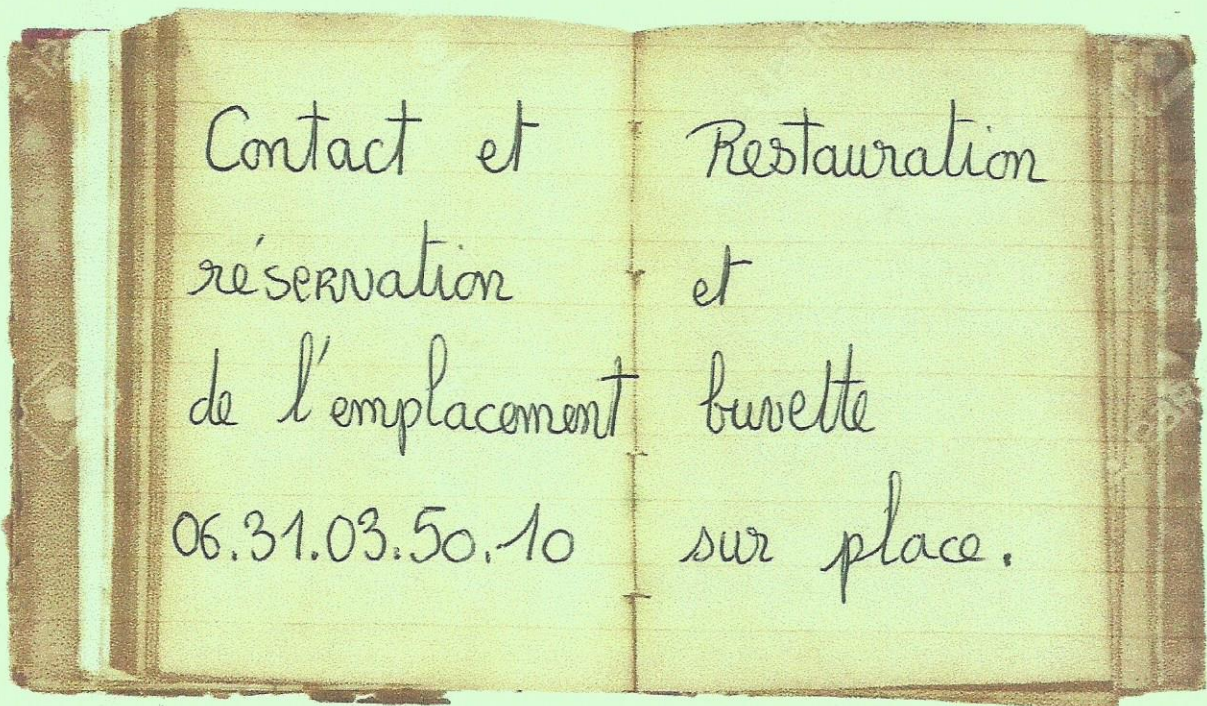 Contact et
réservation
de l'emplacement
06.31.03.50.10
Restauration
et
buvette
sur place.